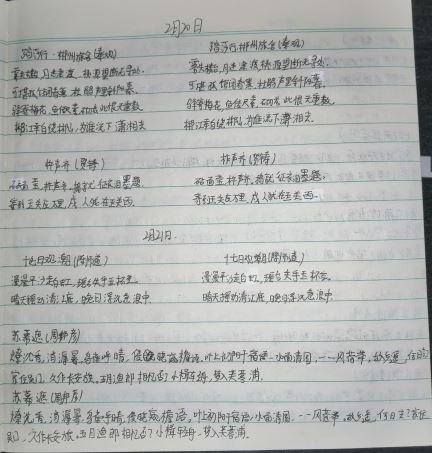 2月20日
踏莎行·郴州旅舍(秦观)
踏莎行·郴州旅舍(秦观)
雾失楼台,月迷津渡,桃源望断无寻处。
雾失楼台,月迷津渡,桃源望断无寻处。
可堪孤馆闭春寒,杜鹃声里斜阳暮。
可堪孤馆闭春寒,杜鹃声里斜阳暮。
驿寄梅花,鱼传尺素,砌成此恨无重数。
驿寄梅花,鱼传尺素,砌成此恨无重数。
郴江幸自绕郴山,为谁流下潇湘去
郴江幸自绕郴山,为谁流下潇湘去
杵声齐(贺铸)
杵声齐(贺铸)
砧面莹,杵声齐,捣就征衣泪墨题。
砧面莹,杵声齐,捣就征衣泪墨题。
寄到玉关应万里,戍人犹在玉关西。
寄到玉关应万里,戍人犹在玉关西。
2月21日
十七日观潮(陈师道)
十七日观潮(陈师道)
漫漫平沙走白虹,瑶台失手玉杯空。
漫漫平沙走白虹,瑶台失手玉杯空。
晴天摇动清江底,晚日浮沉急浪中。
晴天摇动清江底,晚日浮沉急浪中。
苏幕遮(周邦彦)
燎沉香,消溽暑,鸟雀呼晴,侵晓窥檐语,叶上初阳干宿雨,水面清圆,一一风荷举,故乡遥,何日去
家住吴门,久作长安旅,五月渔郎相忆否?小楫轻舟,梦入芙蓉浦。
苏幕遮(周邦彦)
燎沉香,消溽暑,鸟雀呼晴,侵晓窥檐语,叶上初阳干宿雨,水面清圆,一一风荷举,故乡遥,何日去?家住
吴门,久作长安旅,五月渔郎相忆否?小楫轻舟,梦入芙蓉浦。